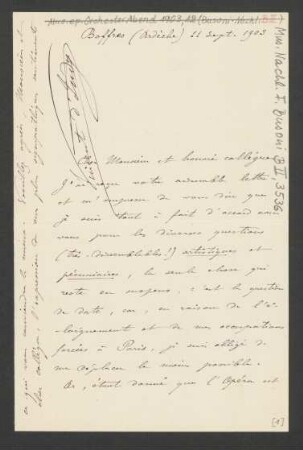 Mus. ep. Orchester-Abend 1903, 18 (Busoni-Nachl. B II)
Mus. Nachl. F. Busoni B II, 3536
Boffres (Ardèche) 22 Sept. 1903
Cher Monsieur et honoré collègue
J'ai reçu votre aimable lettre
et m'empresse de vous dire que
je suis tout à fait d'accord avec
vous pour les diverses questions
(très dissemblables !) artistiques et
pécuniaires, la seule chose qui
reste en suspens, c'est la question
de date, car, en raison de l'é-
loignement et de mes occupations
forcées à Paris, je suis obligé de
me déplacer le moins possible.
Or, étant donné que l'Opéra est
ce que vous conviendra le mieux. Veuillez agréer, Monsieur et
cher collègue, l'expression de mes plus sympathiques sentiments
Vincent d'Indy
[1]